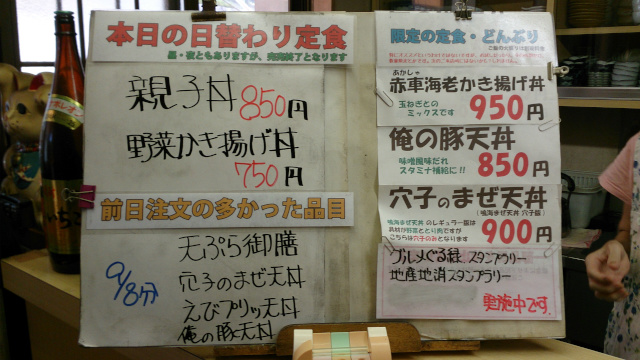 本日の日替わり定食
昼・夜ともありますが、売切れ終了となります
親子丼 850円
野菜かき揚げ丼
750円
前日注文の多かった品目
9/8分
天ぷら御膳
穴子のまぜ天丼
えびプリッ天丼
俺の豚天丼
限定の定食・どんぶり
赤車海老かき揚げ丼
玉ねぎとの
ミックスです
950円
俺の豚天丼
味噌風味だれ
スタミナ補給に!!
850円
穴子のまぜ天丼
(鳴海まぜ天丼 穴子版)
鳴海まぜ天丼 のレギュラー版は
具材が野菜ととり肉ですが
こちらは穴子のみとなります
900円
グルメぐる緑 スタンプラリー
地産地消スタンプラリー
実施中です。